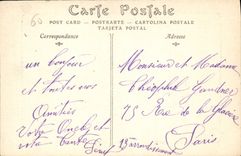 60
Carte Postale
POST CARD — POSTKARTE — CARTOLINA POSTALE
TARJETA POSTAL
Correspondance
Adresse
un bonjour
et toutes nos
Amitiés
Votre Oncle et
votre Tante
Monsieur et Madame
Théophile
75 Rue de la Glacière
Paris
13e arrondissement